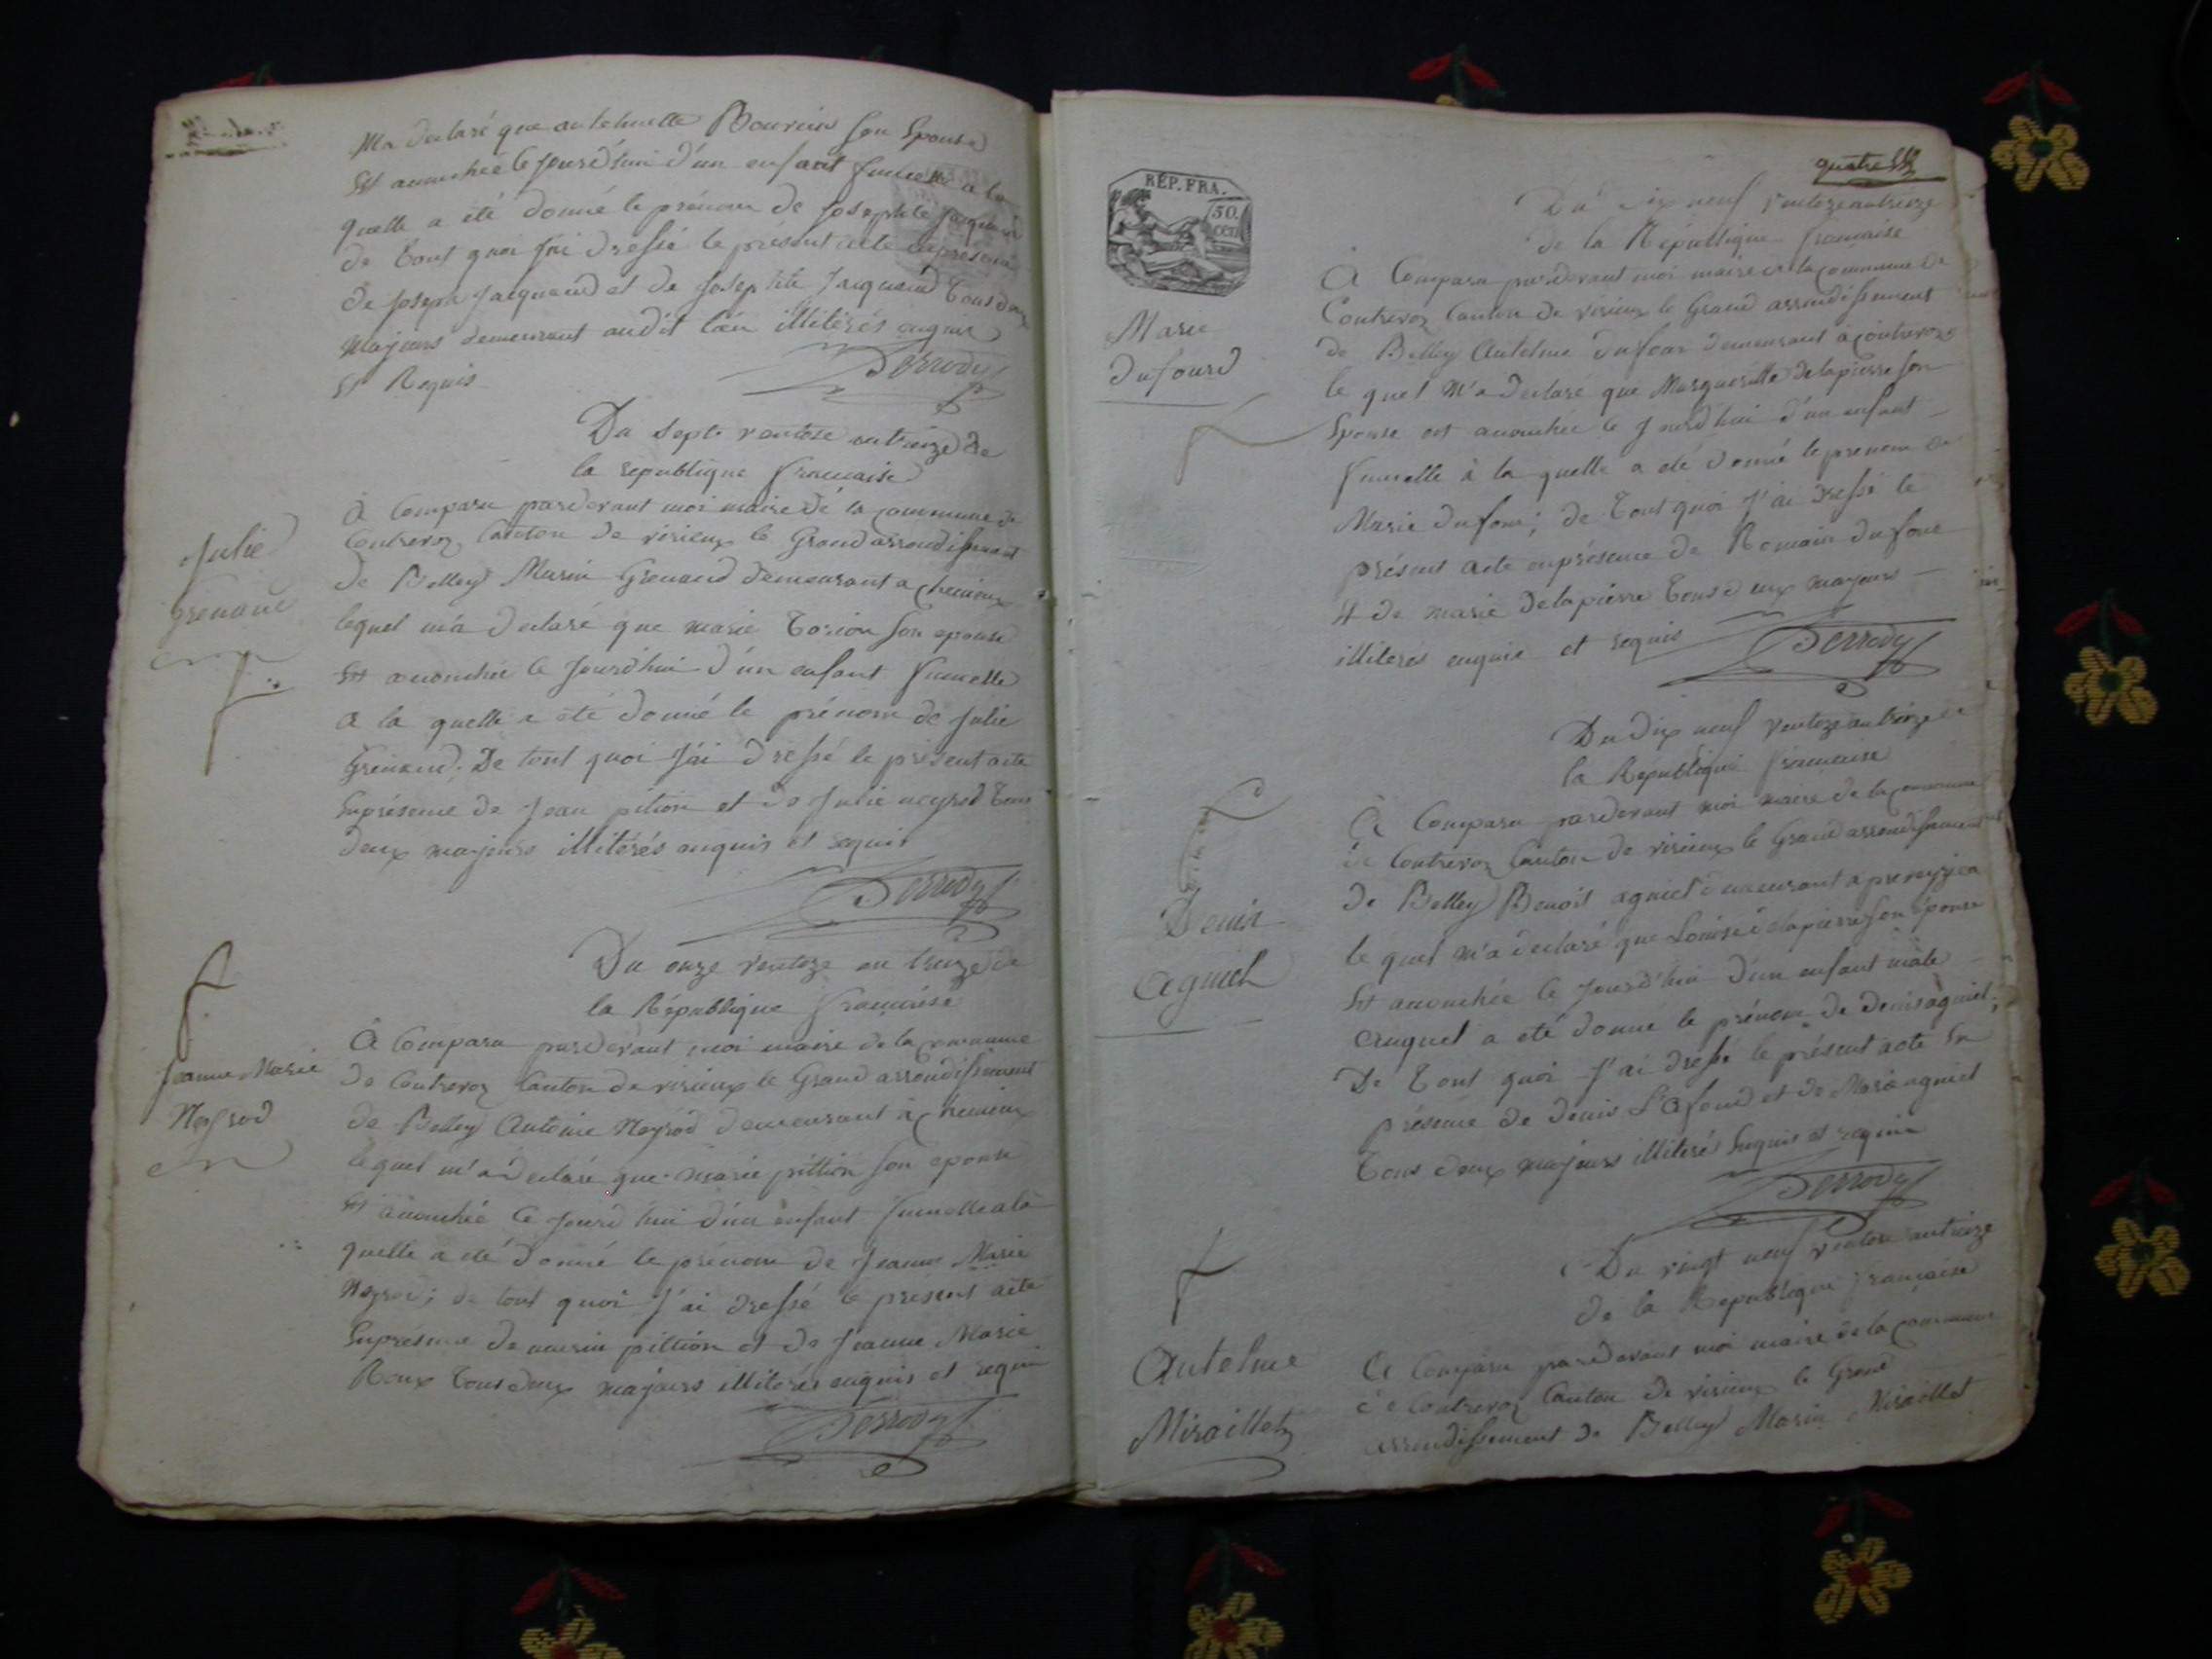 Ma declaré que antelmette Bourcin son Epouse
Est accouchée Ce Jourd'hui d'un enfant fumelle a la
quelle a été donné le prénom de Josephte Jacquand
de tout quoi J'ai dressé le présent acte enprésence
De Joseph Jacquand et de Josephte Jacquand tous deux
Majeurs demeurant audit lieu illitérés enquis
Et Requis
Perrody
Du Sept ventose an treize de
la republique francaise
Julie
Grenand
A Comparu pardevant moi maire de la commune de
Contrevoz Canton de virieux le Grand arrondissement
de Belley Marin Grenand demeurant a cheminux
lequel m'a declaré que marie Torion son epouse
Est accouchée Ce Jourd'hui d'un enfant fumelle
a la quelle a été donné le prénom de Julie
Grenand. De tout quoi J'ai dressé le présent acte
Enprésence de Jean pition et de Julie neyrod tous
deux majeurs illitérés enquis et requis
Perrody
Du onze ventoze an treize de
la République francaise
Jeanne Marie
Neyrod
A Comparu pardevant moi maire de la commune
de Contrevoz Canton de virieux le Grand arrondissement
de Belley Antoine Neyrod demeurant à cheminux
lequel m'a declaré que marie pittion son epouse
Est accouchée Ce Jourd'hui d'un enfant fumelle a la
quelle a été donné le prénom de Jeanne Marie
Neyrod; de tout quoi J'ai dressé le présent acte
Enprésence de marin pittion et de Jeanne Marie
Roux tous deux majeurs illitérés enquis et requis
Perrody
quatre
RÉP. FRA.
50.
cen
Du dix neuf ventoze an treize
de la République francaise
Marie
Dufourd
A Comparu pardevant moi maire de la commune de
Contrevoz Canton de virieux le Grand arrondissement
de Belley Antelme Dufour demeurant à contrevoz
le quel M'a declaré que Margueritte Delapierre son
Epouse est accouchée Ce Jourd'hui d'un enfant
fumelle à la quelle a été donné le prenom de
Marie Dufour; de tout quoi J'ai dressé le
présent acte enprésence de Romain Dufour
Et de marie Delapierre tous deux majeurs
illiteres enquis et requis
Perrody
Du Dix neuf ventoze an treize de
la République francaise
Denis
Agniel
A Comparu pardevant moi maire de la commune
de Contrevoz Canton de virieux le Grand arrondissement
de Belley Benoit agniel demeurant a premeyzieu
le quel m'a declaré que Louise delapierre son Epouse
Est accouchée Ce Jourd'hui d'un enfant mâle
auquel a été donné le prénom de Denis agniel;
De tout quoi J'ai dressé le présent acte En
présence de Denis Dufourd et de Marie agniel
tous deux majeurs illiteré Enquis et requis
Perrody
Du vingt neuf ventose an treize
de la Republique francaise
Antelme
Miraillet
A Comparu pardevant moi maire de la commune
de Contrevoz Canton de virieux le Grand
arrondissement de Belley Marin Miraillet